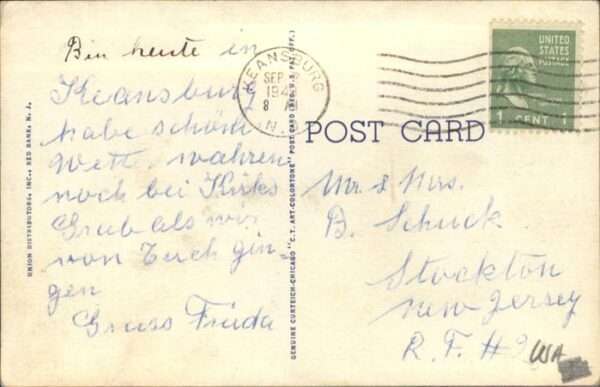 Bin heute in
Keansburg
habe schön
Wett. wahren
noch bei Kirks
Grab als wir
von Euch gin-
gen
Gruss Frieda
UNION DISTRIBUTORS, INC., RED BANK, N. J.
GENUINE CURTEICH-CHICAGO "C.T. ART-COLORTONE" POST CARD (REG. U.S. PAT. OFF.)
KEANSBURG
SEP
194
8
N.J.
UNITED
STATES
POSTAGE
1 CENT 1
POST CARD
Mr & Mrs.
B. Schuck
Stockton
New Jersey
R. F. #2
USA